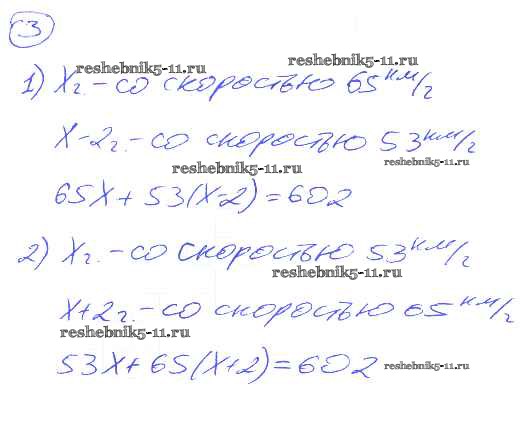 3
reshebnik5-11.ru
reshebnik5-11.ru
1) Xг. - со скоростью 65 км/г
X-2г. - со скоростью 53 км/г
reshebnik5-11.ru
reshebnik5-11.ru
65X + 53(X-2) = 602
2) Xг. - со скоростью 53 км/г
reshebnik5-11.ru
X+2г. - со скоростью 65 км/г
reshebnik5-11.ru
53X + 65(X+2) = 602
reshebnik5-11.ru